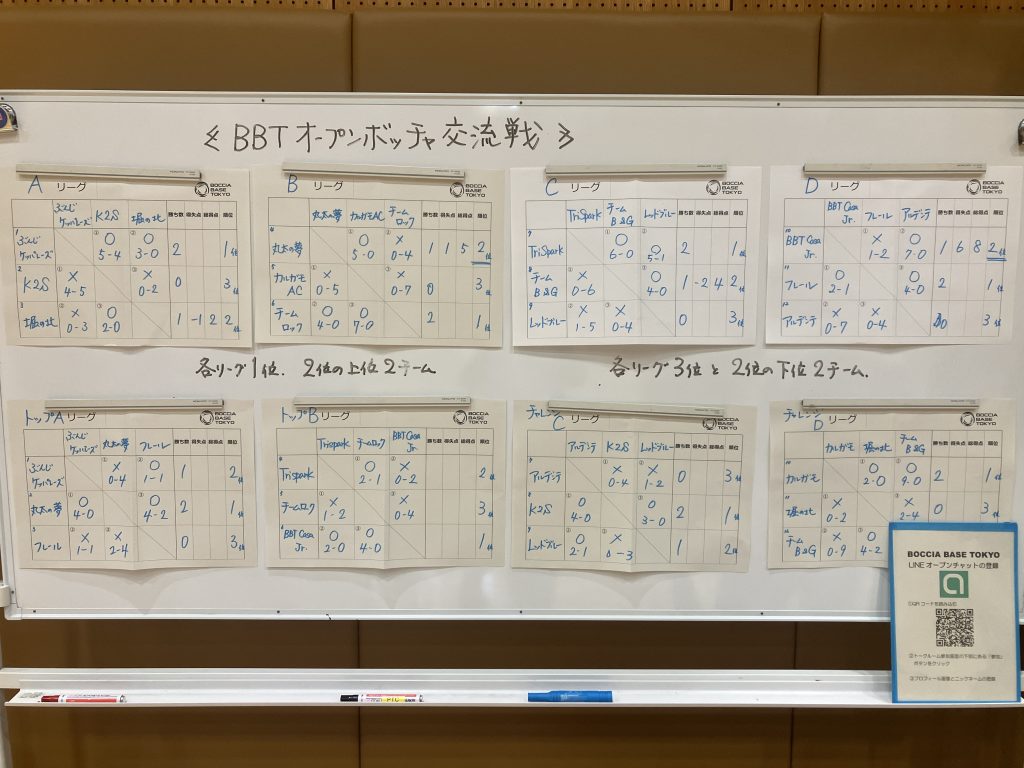 ≪ BBTオープンボッチャ交流戦 ≫
A リーグ BOCCIA BASE TOKYO
ぶんじゲッパレーズ K2S 堀の北 勝ち数 得失点 総得点 順位
1 ぶんじゲッパレーズ ①○ 5-4 ②○ 3-0 2 1位
2 K2S ①× 4-5 ③× 0-2 0 3位
3 堀の北 ②× 0-3 ③○ 2-0 1 -1 2 2位
B リーグ BOCCIA BASE TOKYO
丸太の夢 カルガモAC チームロック 勝ち数 得失点 総得点 順位
4 丸太の夢 ○ 5-0 × 0-4 1 1 5 2位
5 カルガモAC × 0-5 × 0-7 0 3位
6 チームロック ○ 4-0 ○ 7-0 2 1位
C リーグ BOCCIA BASE TOKYO
TriSpark チームB&G レッドブルー 勝ち数 得失点 総得点 順位
TriSpark ○ 6-0 ○ 5-1 2 1位
8 チームB&G × 0-6 ○ 4-0 1 -2 4 2位
9 レッドブルー × 1-5 × 0-4 0 3位
D リーグ BOCCIA BASE TOKYO
BBT Casa Jr. フレール アルデンテ 勝ち数 得失点 総得点 順位
10 BBT Casa Jr. × 1-2 ○ 7-0 1 6 8 2位
11 フレール ○ 2-1 ○ 4-0 2 1位
12 アルデンテ × 0-7 × 0-4 0 3位
各リーグ1位、2位の上位2チーム
各リーグ3位と2位の下位2チーム.
トップA リーグ BOCCIA BASE TOKYO
ぶんじゲッパレーズ 丸太の夢 フレール 勝ち数 得失点 総得点 順位
1 ぶんじゲッパレーズ × 0-4 ○ 1-1 1 2位
2 丸太の夢 ○ 4-0 ○ 4-2 2 1位
3 フレール × 1-1 × 2-4 0 3位
トップB リーグ BOCCIA BASE TOKYO
Trispark チームロック BBT Casa Jr. 勝ち数 得失点 総得点 順位
4 Trispark ○ 2-1 × 0-2 2位
5 チームロック × 1-2 × 0-4 3位
6 BBT Casa Jr. ○ 2-0 ○ 4-0 1位
チャレンジC リーグ BOCCIA BASE TOKYO
アルデンテ K2S レッドブルー 勝ち数 得失点 総得点 順位
アルデンテ × 0-4 × 1-2 0 3位
K2S ○ 4-0 ○ 3-0 2 1位
レッドブルー ○ 2-1 × 0-3 1 2位
チャレンジD リーグ BOCCIA BASE TOKYO
カルガモ 堀の北 チームB&G 勝ち数 得失点 総得点 順位
10 カルガモ ○ 2-0 ○ 9-0 2 1位
堀の北 × 0-2 × 2-4 0 3位
チームB&G × 0-9 ○ 4-2
BOCCIA BASE TOKYO
LINE オープンチャットの登録
①QRコードを読み込む
②トークルーム参加画面の下部にある「参加」
ボタンをクリック
③プロフィール画像とニックネームの登録